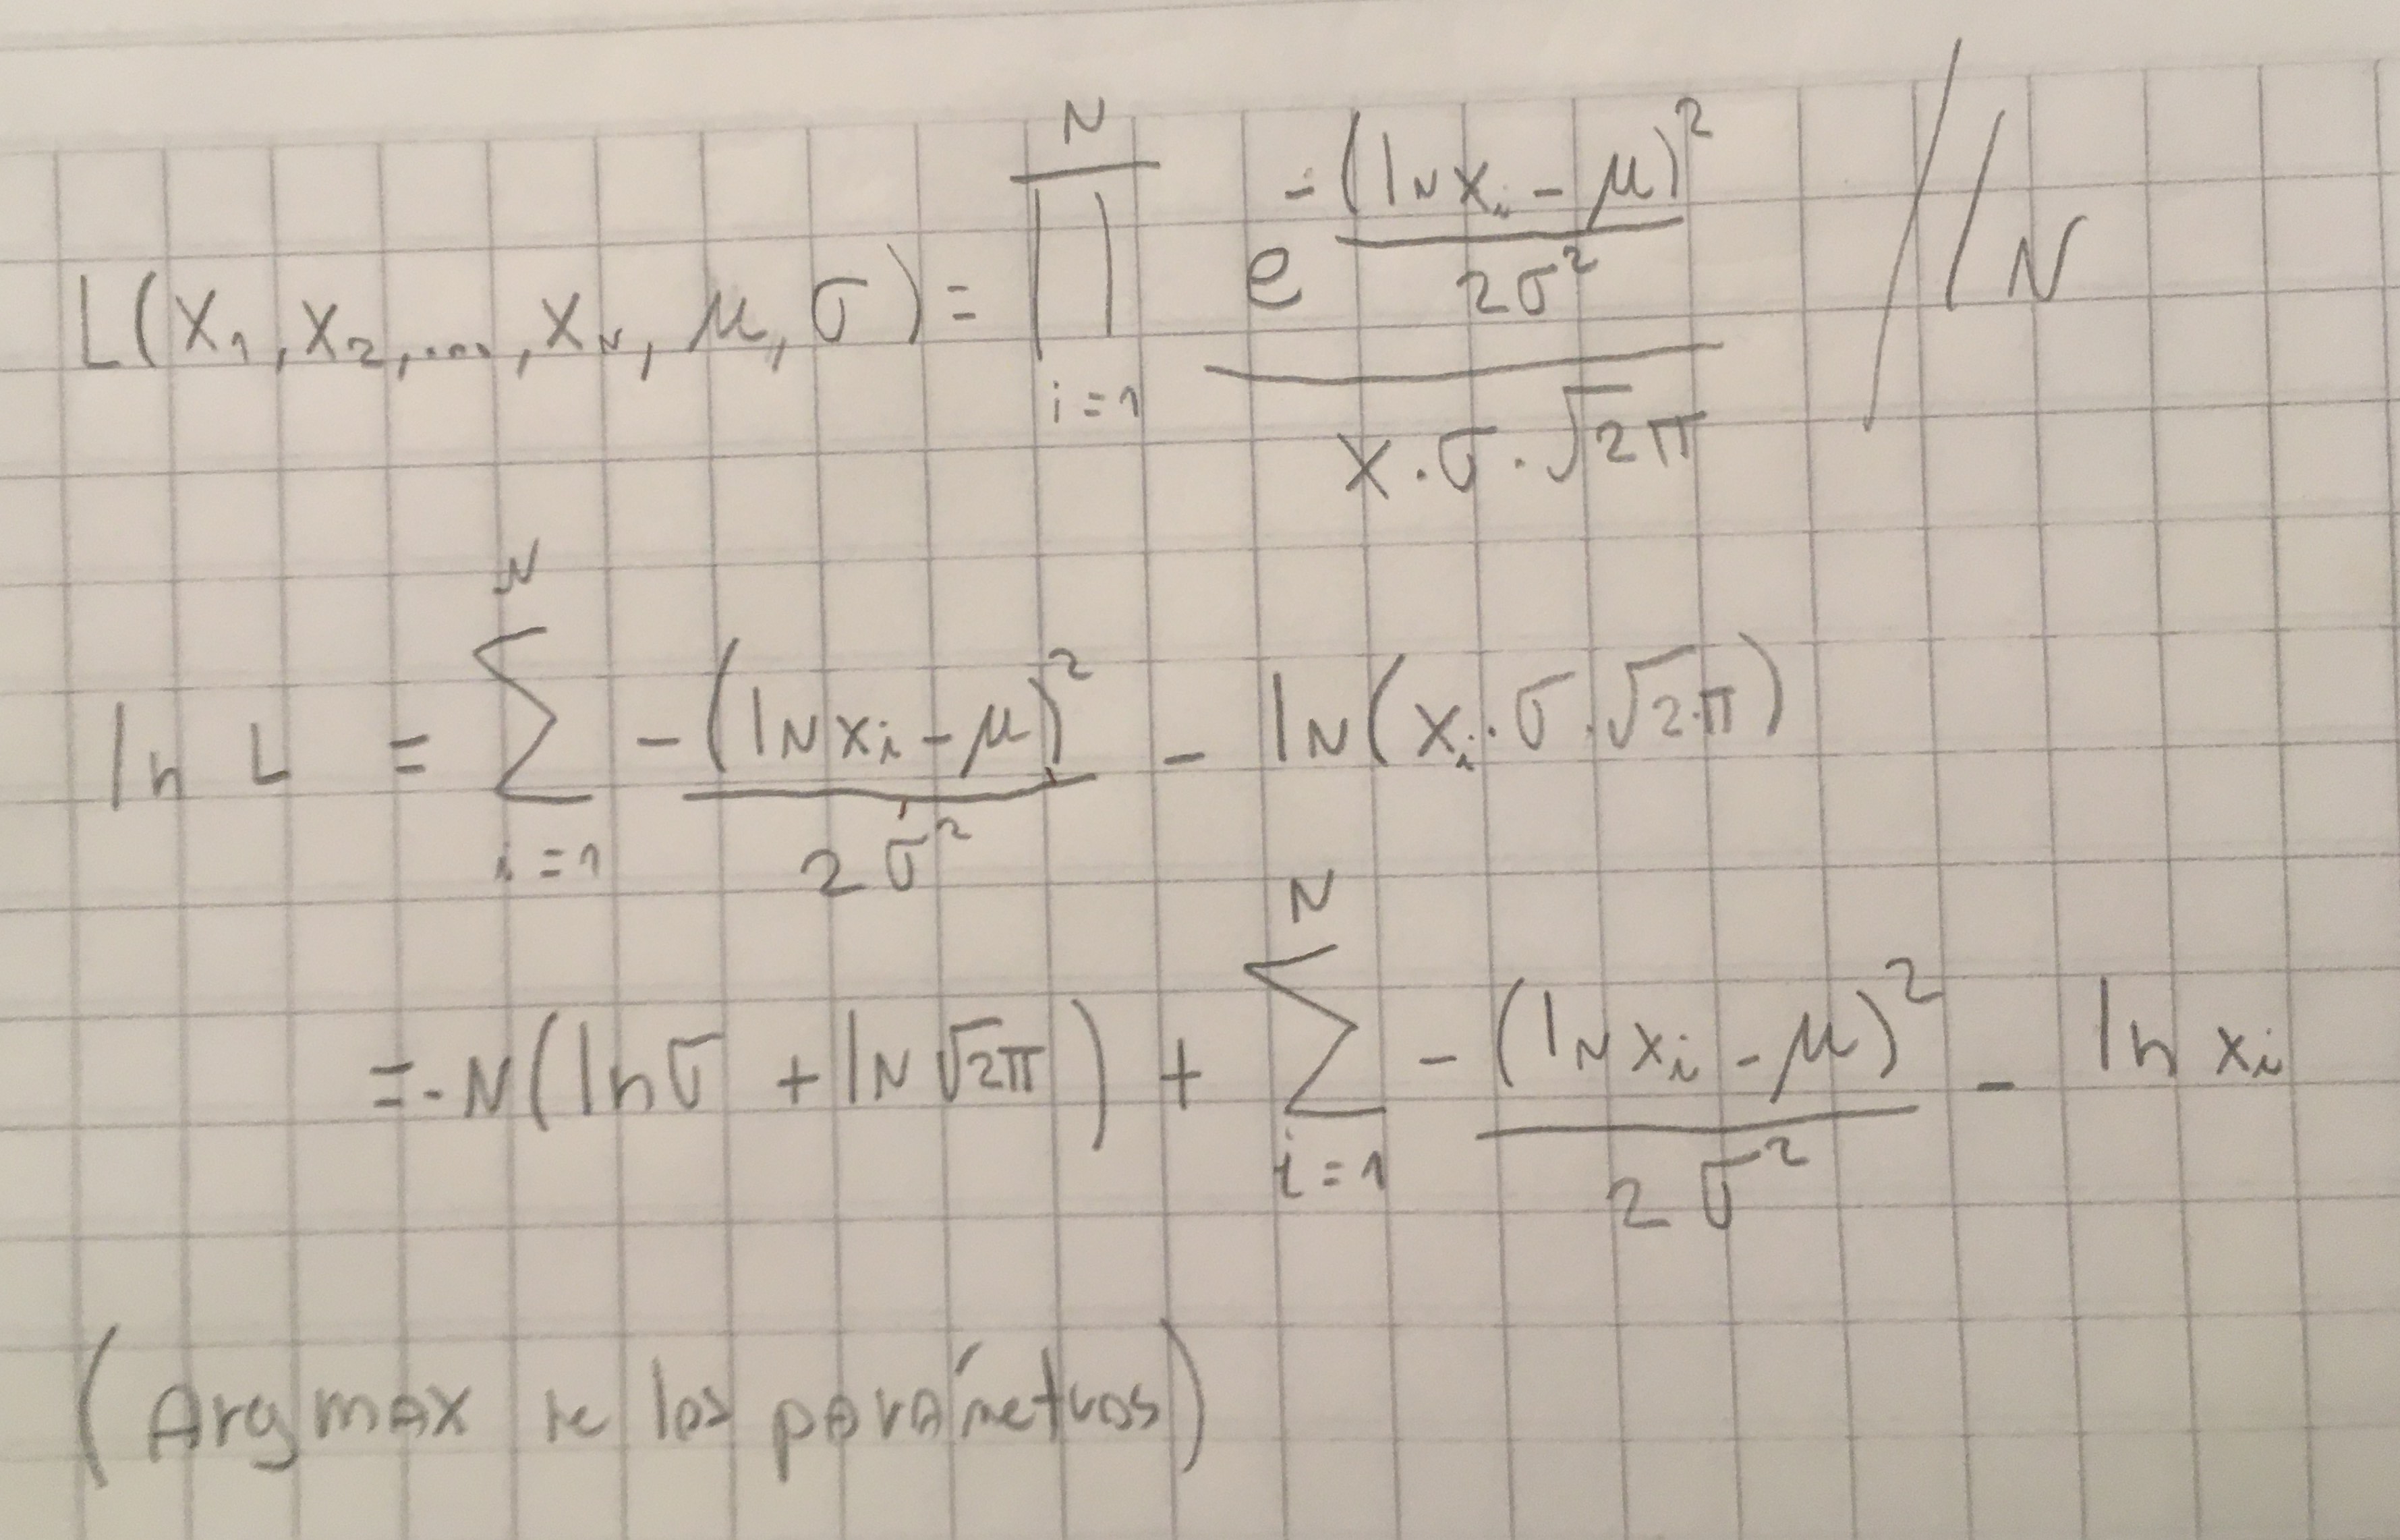 L(x₁, x₂, ..., x_N, μ, σ) = ∏_{i=1}^{N} e^{-(ln x_i - μ)²/(2σ²)} / (x · σ · √2π) / ln
ln L = ∑_{i=1}^{N} -(ln x_i - μ)²/(2σ²) - ln(x_i · σ · √2·π)
= -N(ln σ + ln √2π) + ∑_{i=1}^{N} -(ln x_i - μ)²/(2σ²) - ln x_i
(Argmax los parámetros)